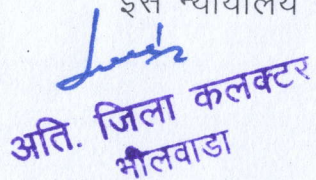 इस न्यायालय
अति. जिला कलक्टर
भीलवाडा